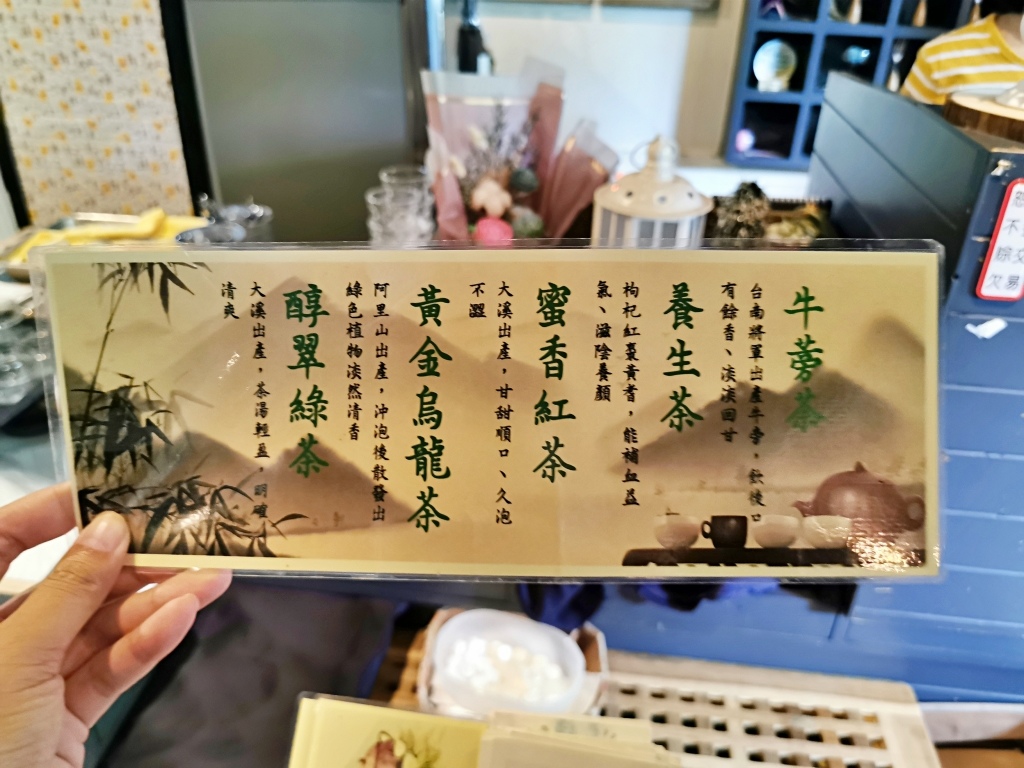 牛蒡茶
台南將軍出產牛蒡，飲後口
有餘香、淡淡回甘
養生茶
枸杞紅棗黃耆，能補血益
氣、滋陰養顏
蜜香紅茶
大溪出產，甘甜順口、久泡
不澀
黃金烏龍茶
阿里山出產，沖泡後散發出
綠色植物淡然清香
醇翠綠茶
大溪出產，茶湯輕盈，明確
清爽